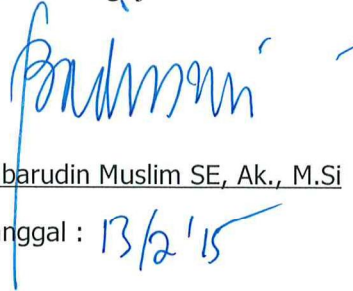 barudin Muslim SE, Ak., M.Si
nggal : 13/2 '15